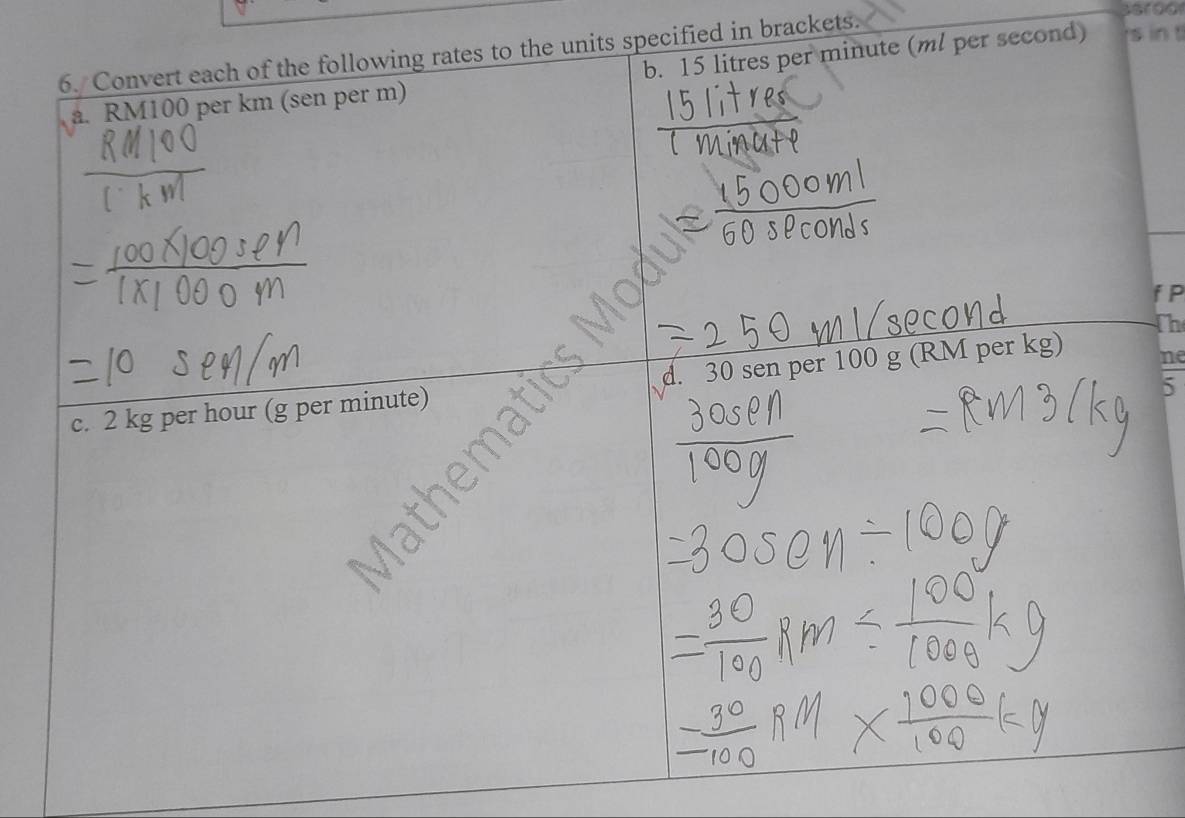 6. Convert each of the following rates to the units specified in brackets.
a. RM100 per km (sen per m)
RM100
1 km
= 100×100 sen
1×1000 m
= 10 sen/m
b. 15 litres per minute (ml per second)
15 litres
1 minute
= 15000ml
60 seconds
= 250 ml/second
c. 2 kg per hour (g per minute)
d. 30 sen per 100 g (RM per kg)
30sen
100g
= 30sen ÷ 100g
= 30/100 RM ÷ 100/1000 kg
= 30/100 RM × 1000/100 kg
= RM3/kg
Mathematics Module
s in t
f P
5